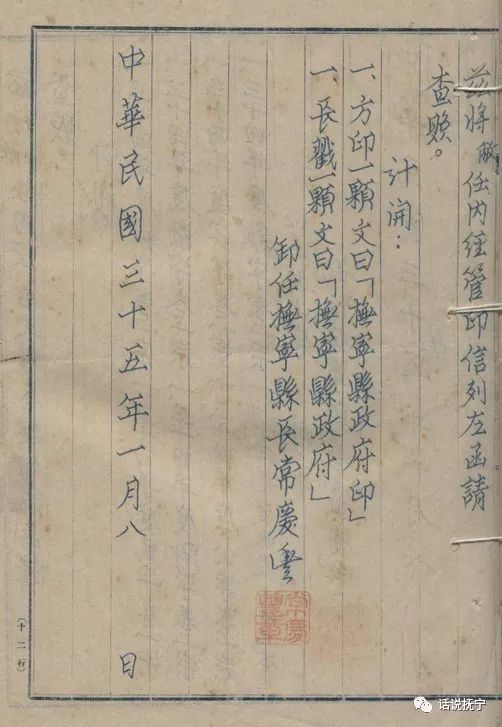 茲將敝任内經管印信列左函請
查照。
計開：
一、方印一顆文曰「撫寧縣政府印」
一、長戳一顆文曰「撫寧縣政府」
卸任撫寧縣長常慶豐
常慶豐章
中華民國三十五年一月八日
（十二行）
话说抚宁